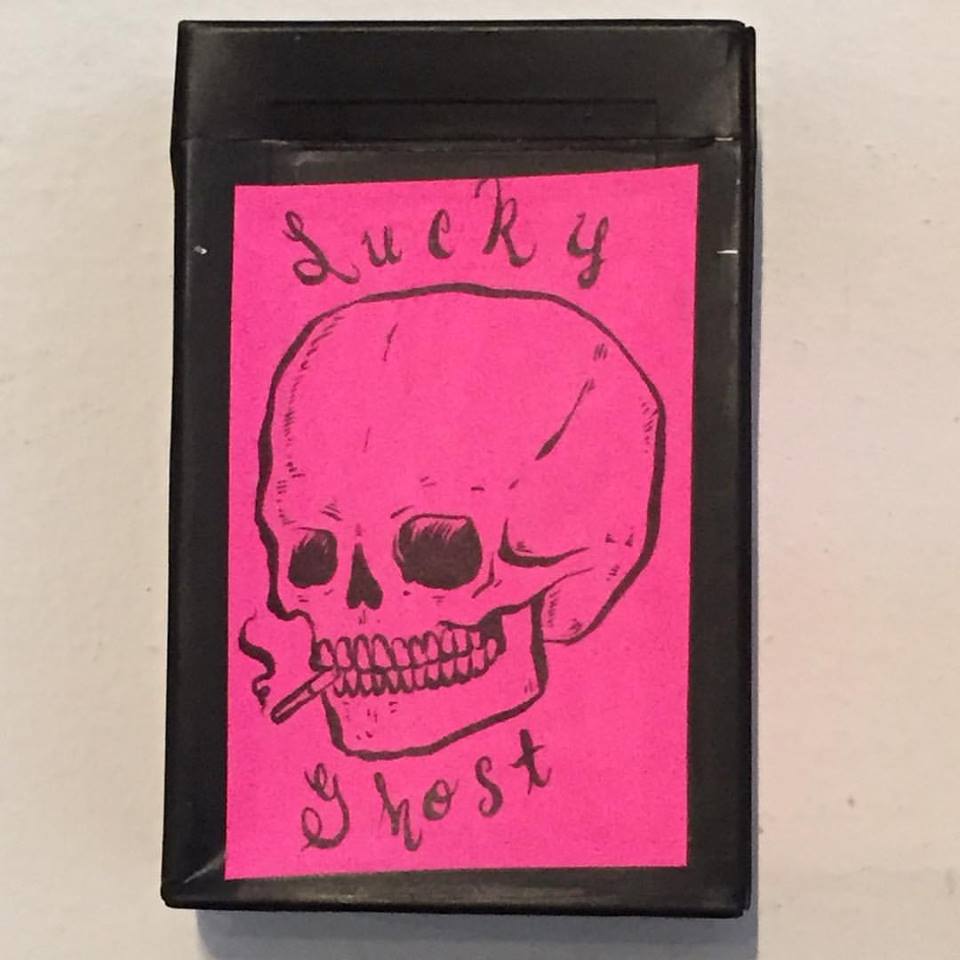 Lucky
Ghost